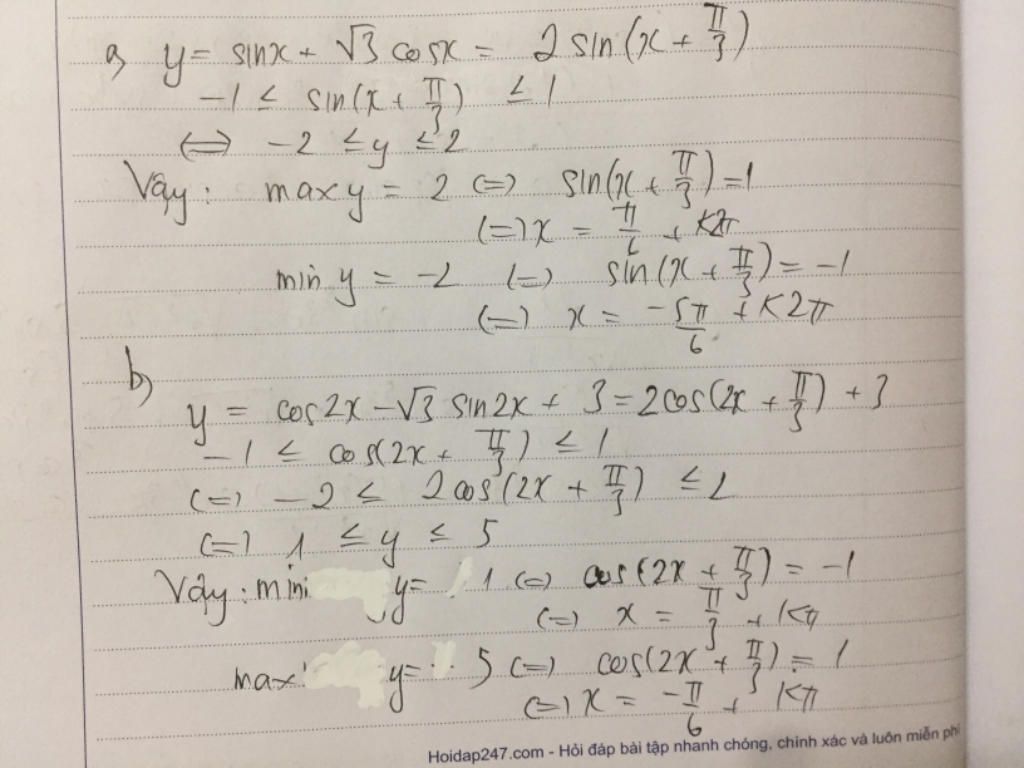 a) y = sinx + √3 cosx = 2 sin(x + π/3)
-1 ≤ sin(x + π/3) ≤ 1
⇔ -2 ≤ y ≤ 2
Vậy: max y = 2 ⇔ sin(x + π/3) = 1
(=) x = π/6 + k2π
min y = -2 (=) sin(x + π/3) = -1
(=) x = -5π/6 + k2π
b)
y = cos2x - √3 sin2x + 3 = 2cos(2x + π/3) + 3
-1 ≤ cos(2x + π/3) ≤ 1
(=) -2 ≤ 2cos(2x + π/3) ≤ 2
(=) 1 ≤ y ≤ 5
Vậy: min y = 1 (=) cos(2x + π/3) = -1
(=) x = π/3 + kπ
max y = 5 (=) cos(2x + π/3) = 1
(=) x = -π/6 + kπ
Hoidap247.com - Hỏi đáp bài tập nhanh chóng, chính xác và luôn miễn phí